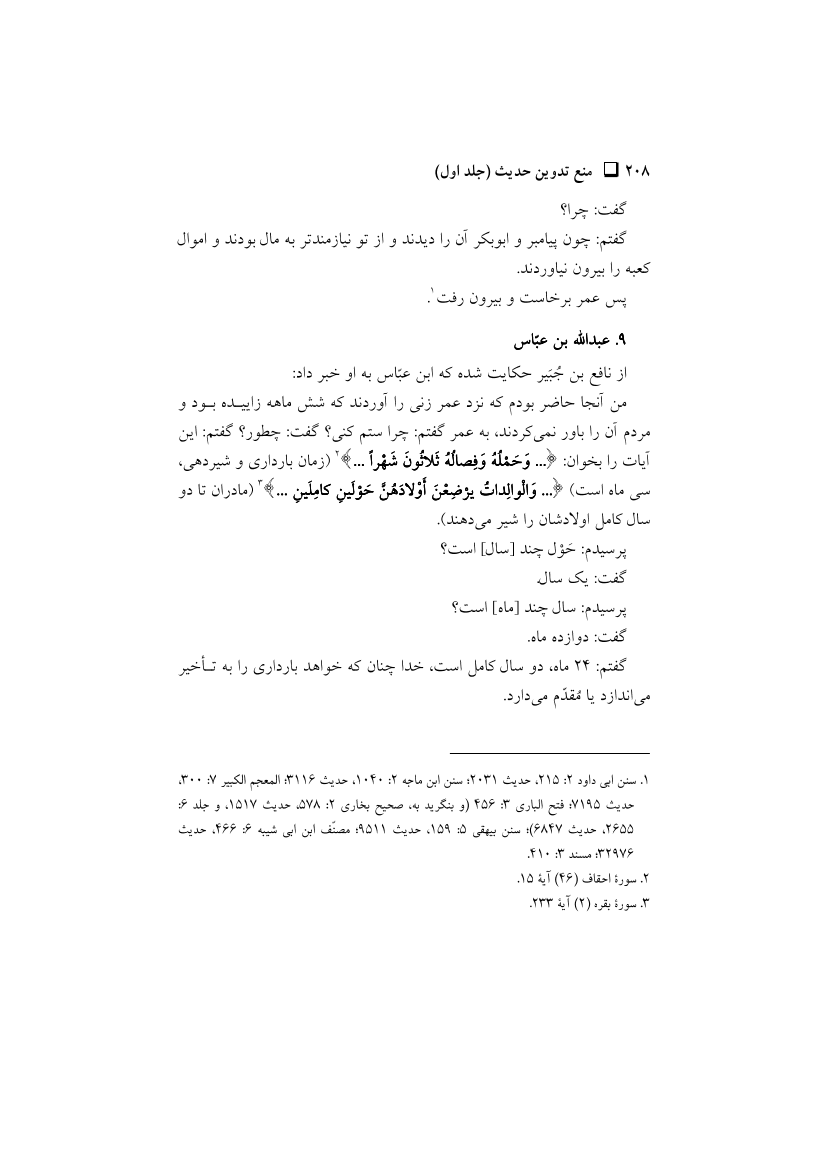 ۲۰۸ ❑ منع تدوین حدیث (جلد اول)
گفت: چرا؟
گفتم: چون پیامبر و ابوبکر آن را دیدند و از تو نیازمندتر به مال بودند و اموال
کعبه را بیرون نیاوردند.
پس عمر برخاست و بیرون رفت۱.
۹. عبدالله بن عبّاس
از نافع بن جُبَیر حکایت شده که ابن عبّاس به او خبر داد:
من آنجا حاضر بودم که نزد عمر زنی را آوردند که شش ماهه زاییـده بـود و
مردم آن را باور نمی‌کردند، به عمر گفتم: چرا ستم کنی؟ گفت: چطور؟ گفتم: این
آیات را بخوان: ﴿... وَحَمْلُهُ وَفِصالُهُ ثَلاثُونَ شَهْراً ...﴾۲ (زمان بارداری و شیردهی،
سی ماه است) ﴿... وَالْوالِداتُ یرْضِعْنَ أَوْلادَهُنَّ حَوْلَینِ کامِلَینِ ...﴾۳ (مادران تا دو
سال کامل اولادشان را شیر می‌دهند).
پرسیدم: حَوْل چند [سال] است؟
گفت: یک سال.
پرسیدم: سال چند [ماه] است؟
گفت: دوازده ماه.
گفتم: ۲۴ ماه، دو سال کامل است، خدا چنان که خواهد بارداری را به تـأخیر
می‌اندازد یا مُقدّم می‌دارد.
۱. سنن ابی داود ۲: ۲۱۵، حدیث ۲۰۳۱؛ سنن ابن ماجه ۲: ۱۰۴۰، حدیث ۳۱۱۶؛ المعجم الکبیر ۷: ۳۰۰،
حدیث ۷۱۹۵؛ فتح الباری ۳: ۴۵۶ (و بنگرید به، صحیح بخاری ۲: ۵۷۸، حدیث ۱۵۱۷، و جلد ۶:
۲۶۵۵، حدیث ۶۸۴۷)؛ سنن بیهقی ۵: ۱۵۹، حدیث ۹۵۱۱؛ مصنّف ابن ابی شیبه ۶: ۴۶۶، حدیث
۳۲۹۷۶؛ مسند ۳: ۴۱۰.
۲. سورهٔ احقاف (۴۶) آیهٔ ۱۵.
۳. سورهٔ بقره (۲) آیهٔ ۲۳۳.